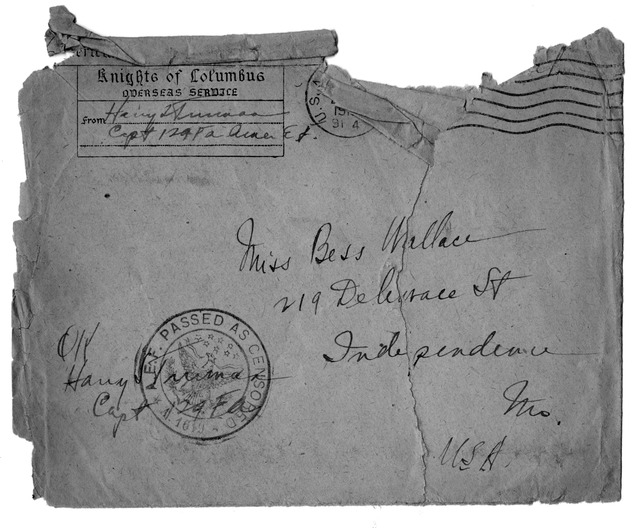 Knights of Columbus
OVERSEAS SERVICE
From Harry S Truman
Capt 129 FA Amer E.F.
U.S.
31 4
Miss Bess Wallace
219 Delaware St
Independence
Mo.
USA.
OK
Harry S Truman
Capt 129 FA
A.E.F. PASSED AS CENSORED